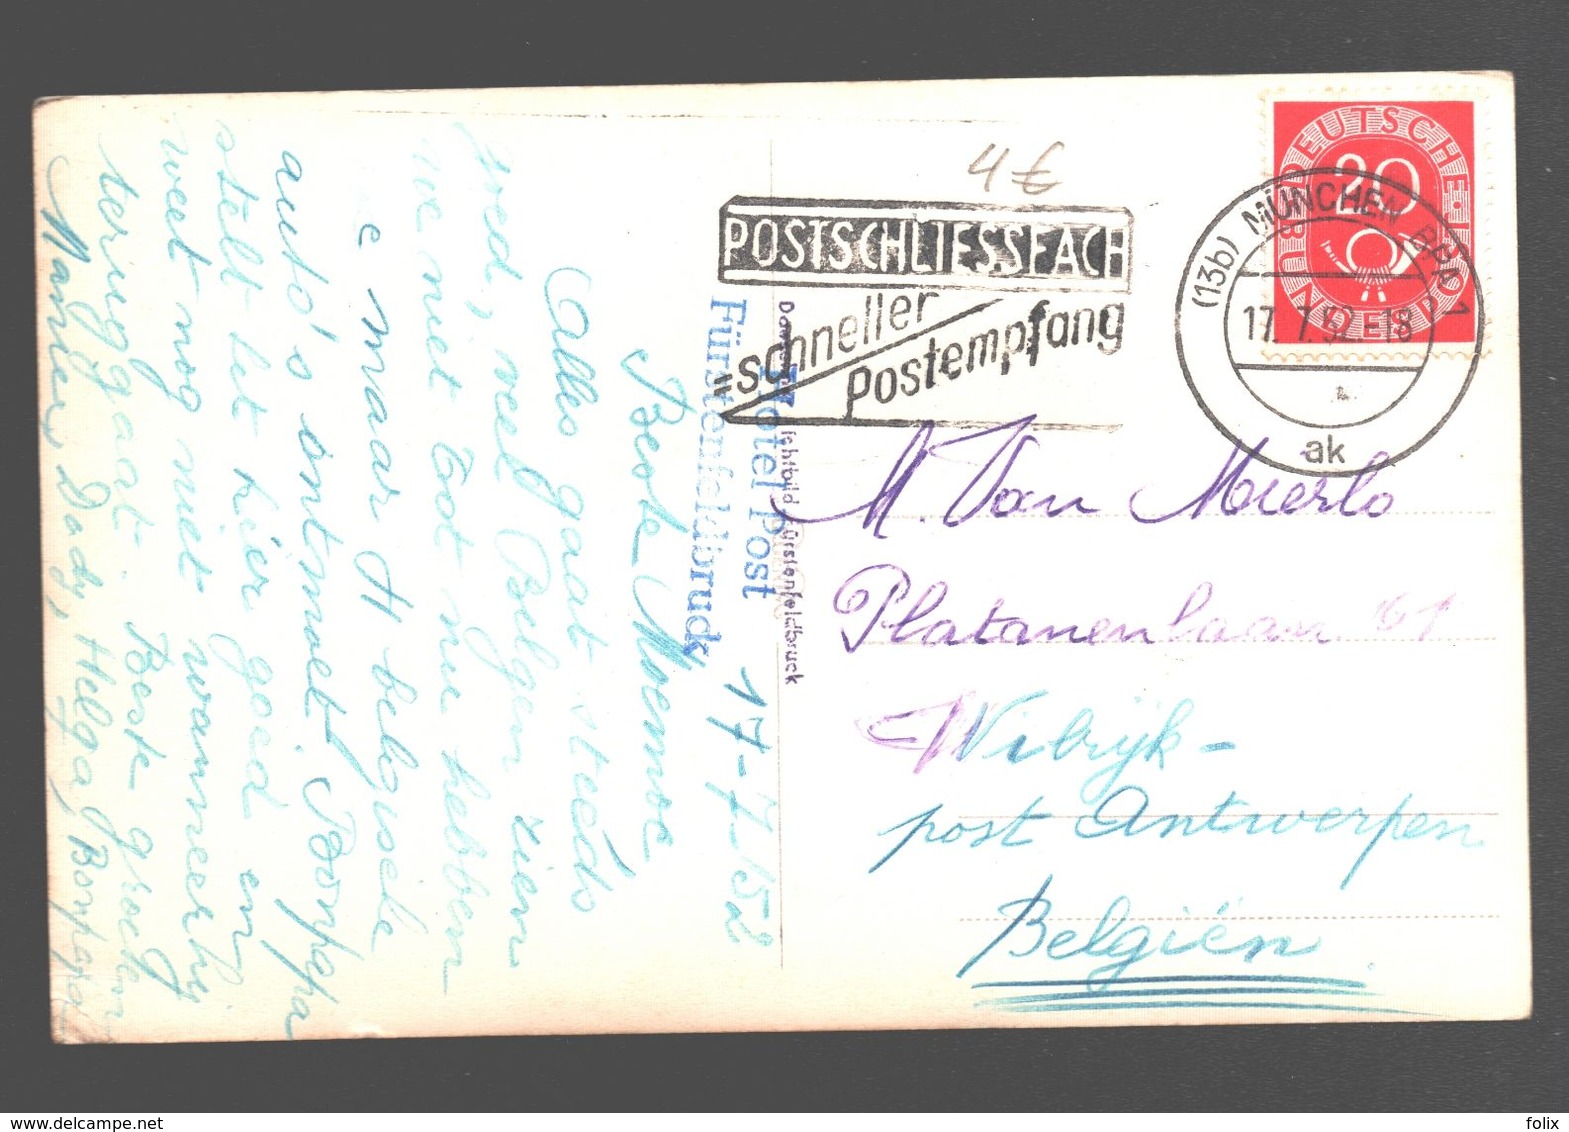 17-7-/52
Beste Moemoe
Alles gaat steeds
goed, veel Belgen zien
we niet tot nu hebben
e maar 4 belgische
auto's ontmoet. Bonpapa
stelt het hier goed en
weet nog niet wanneer hij
teruggaat. Beste groeten
Mamie, Dady, Helga, Bonpapa
4 €
POSTSCHLIESSFACH
=schneller
Postempfang
DEUTSCHE BUNDESPOST
20
(13b) MÜNCHEN BPA 1
17. 7. 52.-18
ak
Hotel Post
Fürstenfeldbruck
Lichtbild Fürstenfeldbruck
M. Van Mierlo
Platanenlaan 61
Wilrijk-
post Antwerpen
Belgiën.
folix
delcampe.net